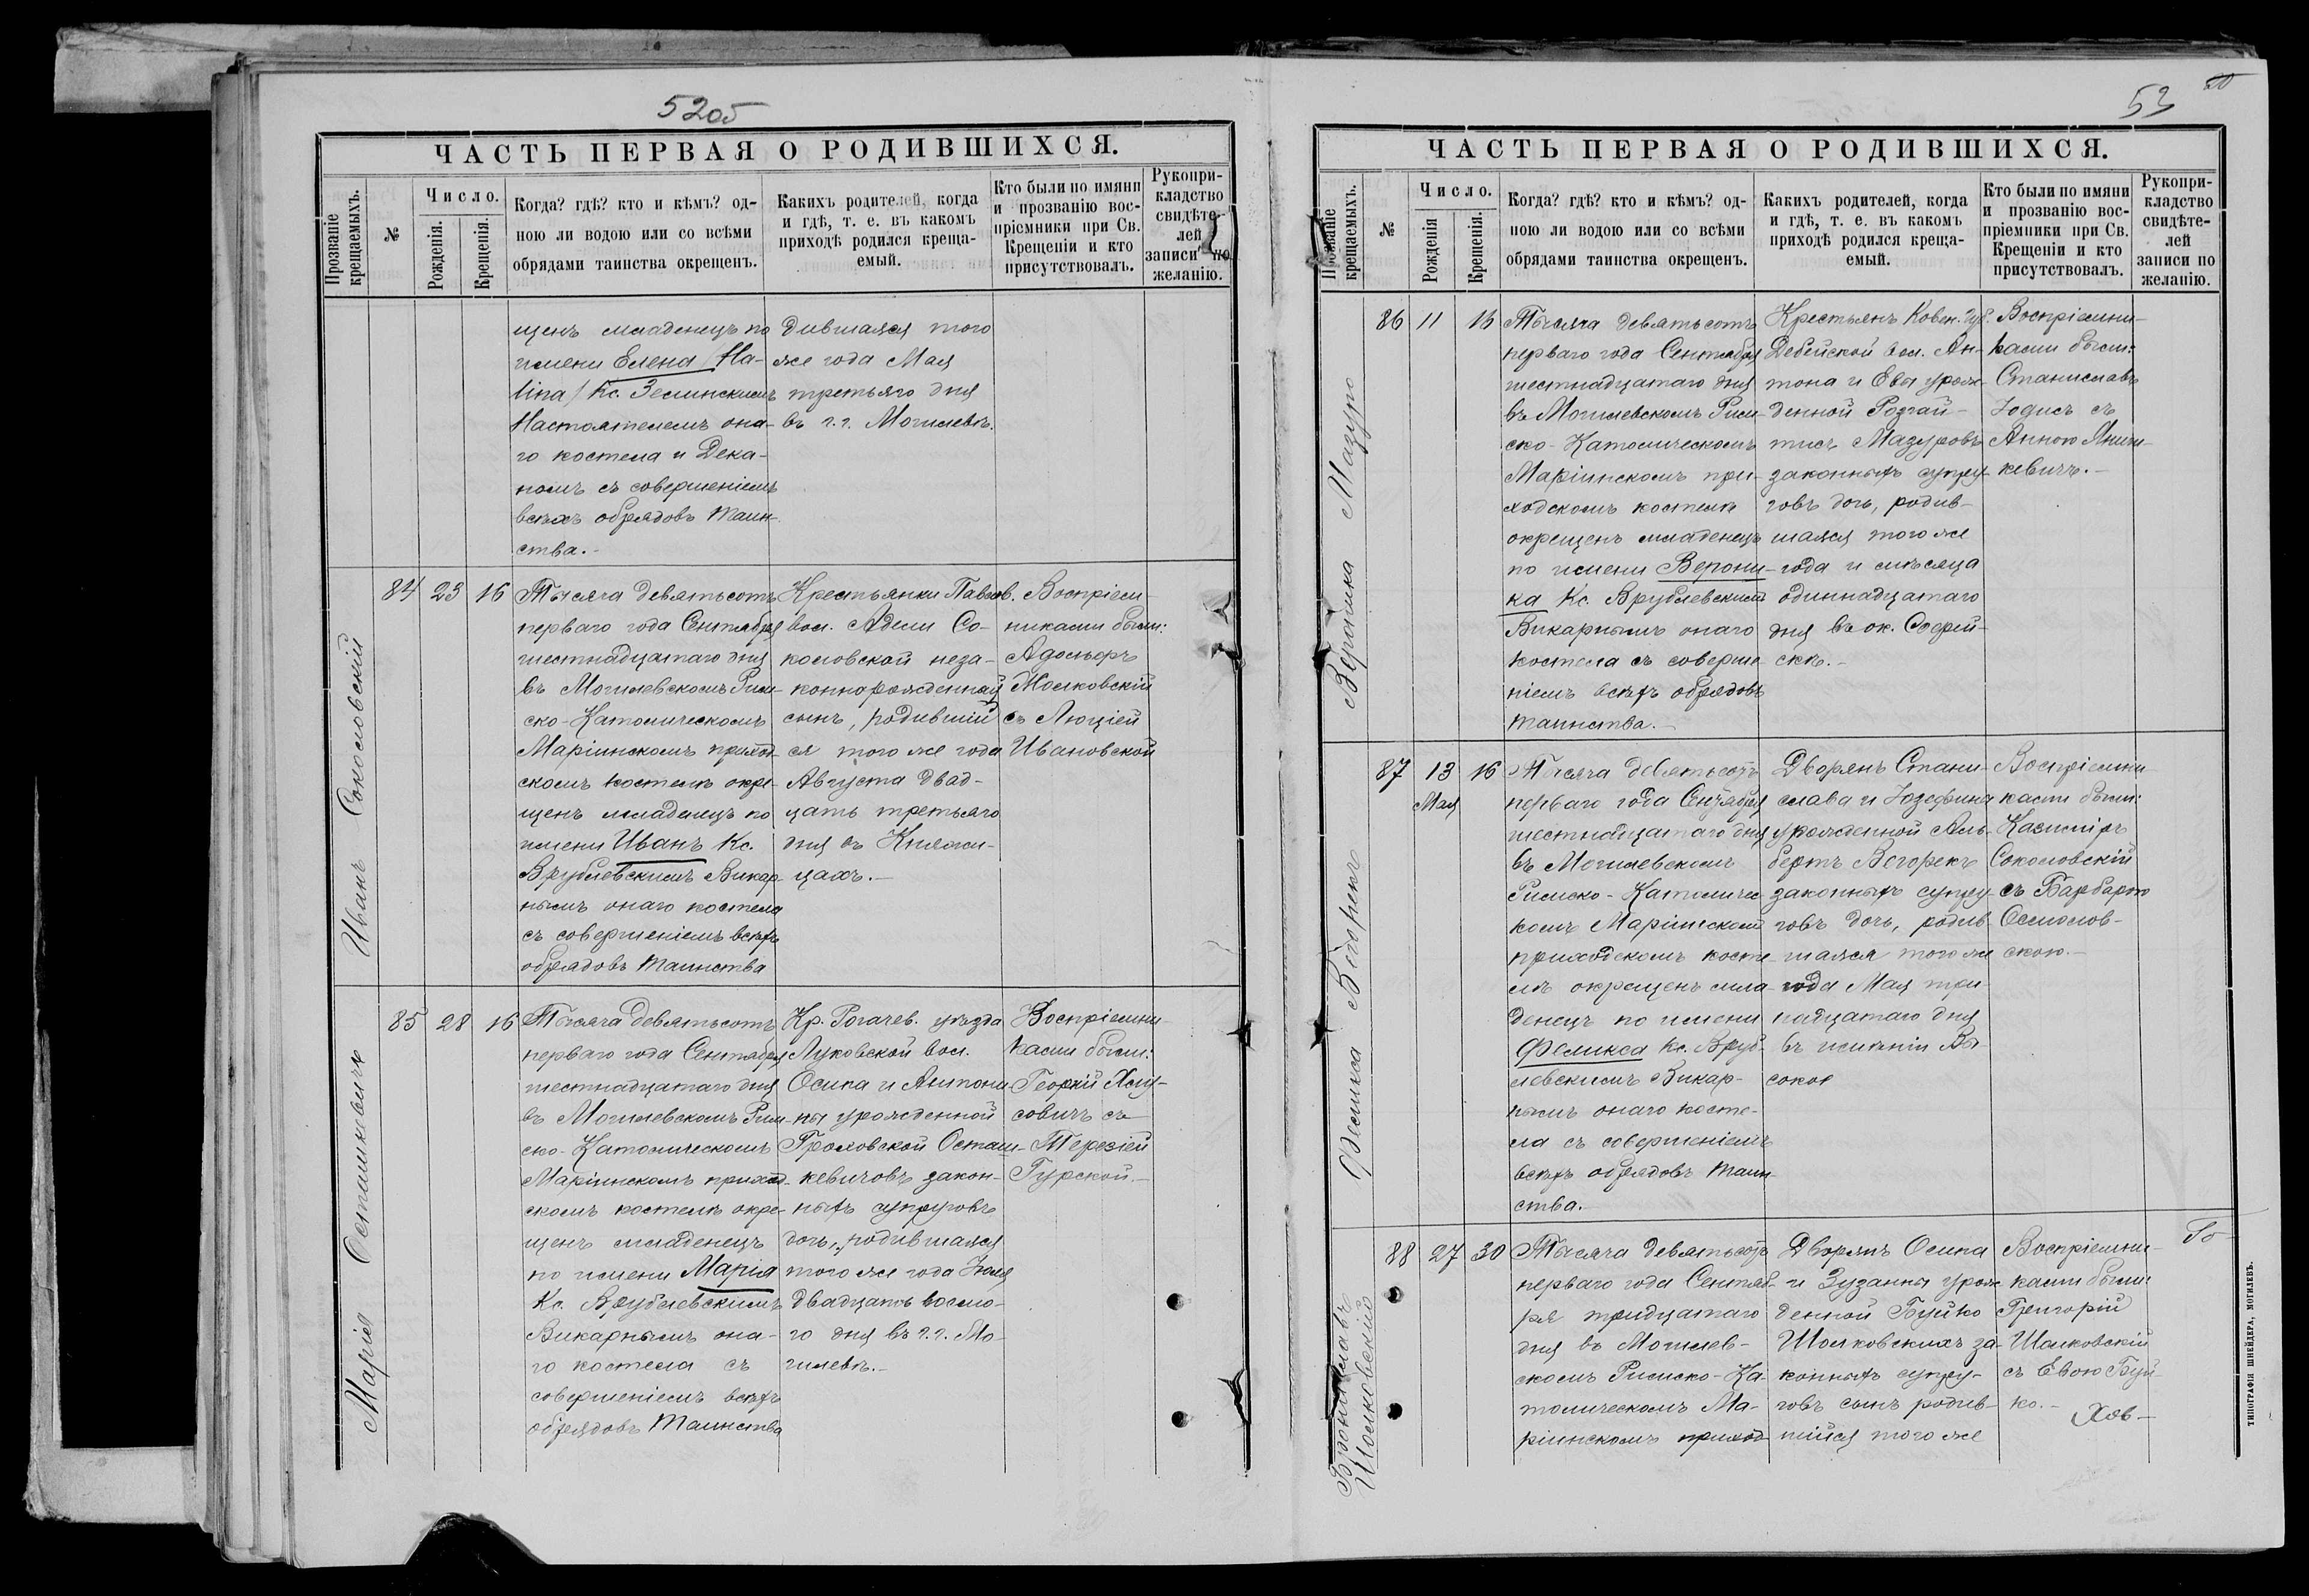 52об
ЧАСТЬ ПЕРВАЯ О РОДИВШИХСЯ.
Прозваніе крещаемыхъ.
№
Число.
Рожденія.
Крещенія.
Когда? гдѣ? кто и кѣмъ? од-
ною ли водою или со всѣми
обрядами таинства окрещенъ.
Какихъ родителей, когда
и гдѣ, т. е. въ какомъ
приходѣ родился креща-
емый.
Кто были по имяни
и прозванію вос-
пріемники при Св.
Крещеніи и кто
присутствовалъ.
Рукопри-
кладство
свидѣте-
лей
записи по
желанію.
щенъ младенецъ по
имени Елена /Ha-
lina/ Кс. Зелинскимъ
Настоятелемъ она-
го костела и Дека-
номъ съ совершеніемъ
всѣхъ обрядовъ Таин-
ства.-
дившаяся того
же года Мая
третьяго дня
въ г.г. Могилевѣ.
Иванъ Соколовскій
84 23 16
Тысяча девятьсотъ
перваго года Сентября
шестнадцатаго дня
въ Могилевскомъ Рим-
ско-Католическомъ
Маріинскомъ приход-
скомъ костелѣ окре-
щенъ младенецъ по
имени Иванъ Кс.
Врублевскимъ Викар-
нымъ онаго костела
съ совершеніемъ всѣхъ
обрядовъ Таинства
Крестьянки Павлов.
вол. Адели Со-
коловской неза-
коннорожденный
сынъ, родившій
ся того же года
Августа двад-
цать третьяго
дня въ Княжи-
цахъ.-
Воспріем-
никами были:
Адольфъ
Жолковскій
съ Люціей
Ивановской
Марія Осташкевичъ
85 28 16
Тысяча девятьсотъ
перваго года Сентября
шестнадцатаго дня
въ Могилевскомъ Рим-
ско-Католическомъ
Маріинскомъ приход-
скомъ костелѣ окре-
щенъ младенецъ
по имени Марія
Кс. Врублевскимъ
Викарнымъ она-
го костела съ
совершеніемъ всѣхъ
обрядовъ Таинства
Кр. Рогачев. уѣзда
Луковской вол.
Осипа и Антони-
ны урожденной
Громовской Осташ-
кевичовъ закон-
ныхъ супруговъ
дочь, родившаяся
того же года Іюля
двадцать восьмо-
го дня въ г.г. Мо-
гилевѣ.-
Воспріемни-
ками были:
Георгій
совичъ съ
Терезіей
Гурской.-
53
ЧАСТЬ ПЕРВАЯ О РОДИВШИХСЯ.
Прозваніе крещаемыхъ.
№
Число.
Рожденія
Крещенія.
Когда? гдѣ? кто и кѣмъ? од-
ною ли водою или со всѣми
обрядами таинства окрещенъ.
Какихъ родителей, когда
и гдѣ, т. е. въ какомъ
приходѣ родился креща-
емый.
Кто были по имяни
и прозванію вос-
пріемники при Св.
Крещеніи и кто
присутствовалъ.
Рукопри-
кладство
свидѣте-
лей
записи по
желанію.
Вероника Мазуро
86 11 16
Тысяча девятьсотъ
перваго года Сентября
шестнадцатаго дня
въ Могилевскомъ Рим-
ско-Католическомъ
Маріинскомъ при-
ходскомъ костелѣ
окрещенъ младенецъ
по имени Верони-
ка Кс. Врублевскимъ
Викарнымъ онаго
костела съ соверше
ніемъ всѣхъ обрядовъ
Таинства.-
Крестьянъ Ковен. Губ.
Дебейской вол. Ан-
тона и Евы урож-
денной Розгай-
тисъ Мазуровъ
законныхъ супру-
говъ дочь, родив-
шаяся того же
года и мѣсяца
одиннадцатаго
дня въ ок.
скѣ.-
Воспріемни-
ками были:
Станиславъ
Іодисъ съ
Анною
кевичъ.-
Феликса Вѣгорекъ
87 13 16
Мая
Тысяча девятьсотъ
перваго года Сентября
шестнадцатаго дня
въ Могилевскомъ
Римско-Католичес
комъ Маріинскомъ
приходскомъ косте
лѣ окрещенъ мла-
денецъ по имени
Феликса Кс. Вруб-
левскимъ Викар-
нымъ онаго косте-
ла съ совершеніемъ
всѣхъ обрядовъ Таин-
ства.-
Дворянъ Стани-
слава и Іозефины
урожденной Аль-
бертъ Вѣгорекъ
законныхъ супру-
говъ дочь, родив
шаяся того же
года Мая три-
надцатаго дня
въ имѣніи Вы
сокое
Воспріемни
ками были:
Казимиръ
Соколовскій
съ Барбарою
Осмолов-
скою.-
Брониславъ
Шолковскій
88 27 30
Тысяча девятьсотъ
перваго года Сентяб-
ря тридцатаго
дня въ Могилев-
скомъ Римско-Ка-
толическомъ Ма-
ріинскомъ приход-
Дворянъ Осипа
и Зузанны урож
денной Буйко
Шолковскихъ за-
конныхъ супру-
говъ сынъ родив-
шійся того же
Воспріемни-
ками были:
Григорій
Шалковскій
съ Евою Буй-
ко.-
ТИПОГРАФІЯ ШНЕЙДЕРА, МОГИЛЕВЪ.